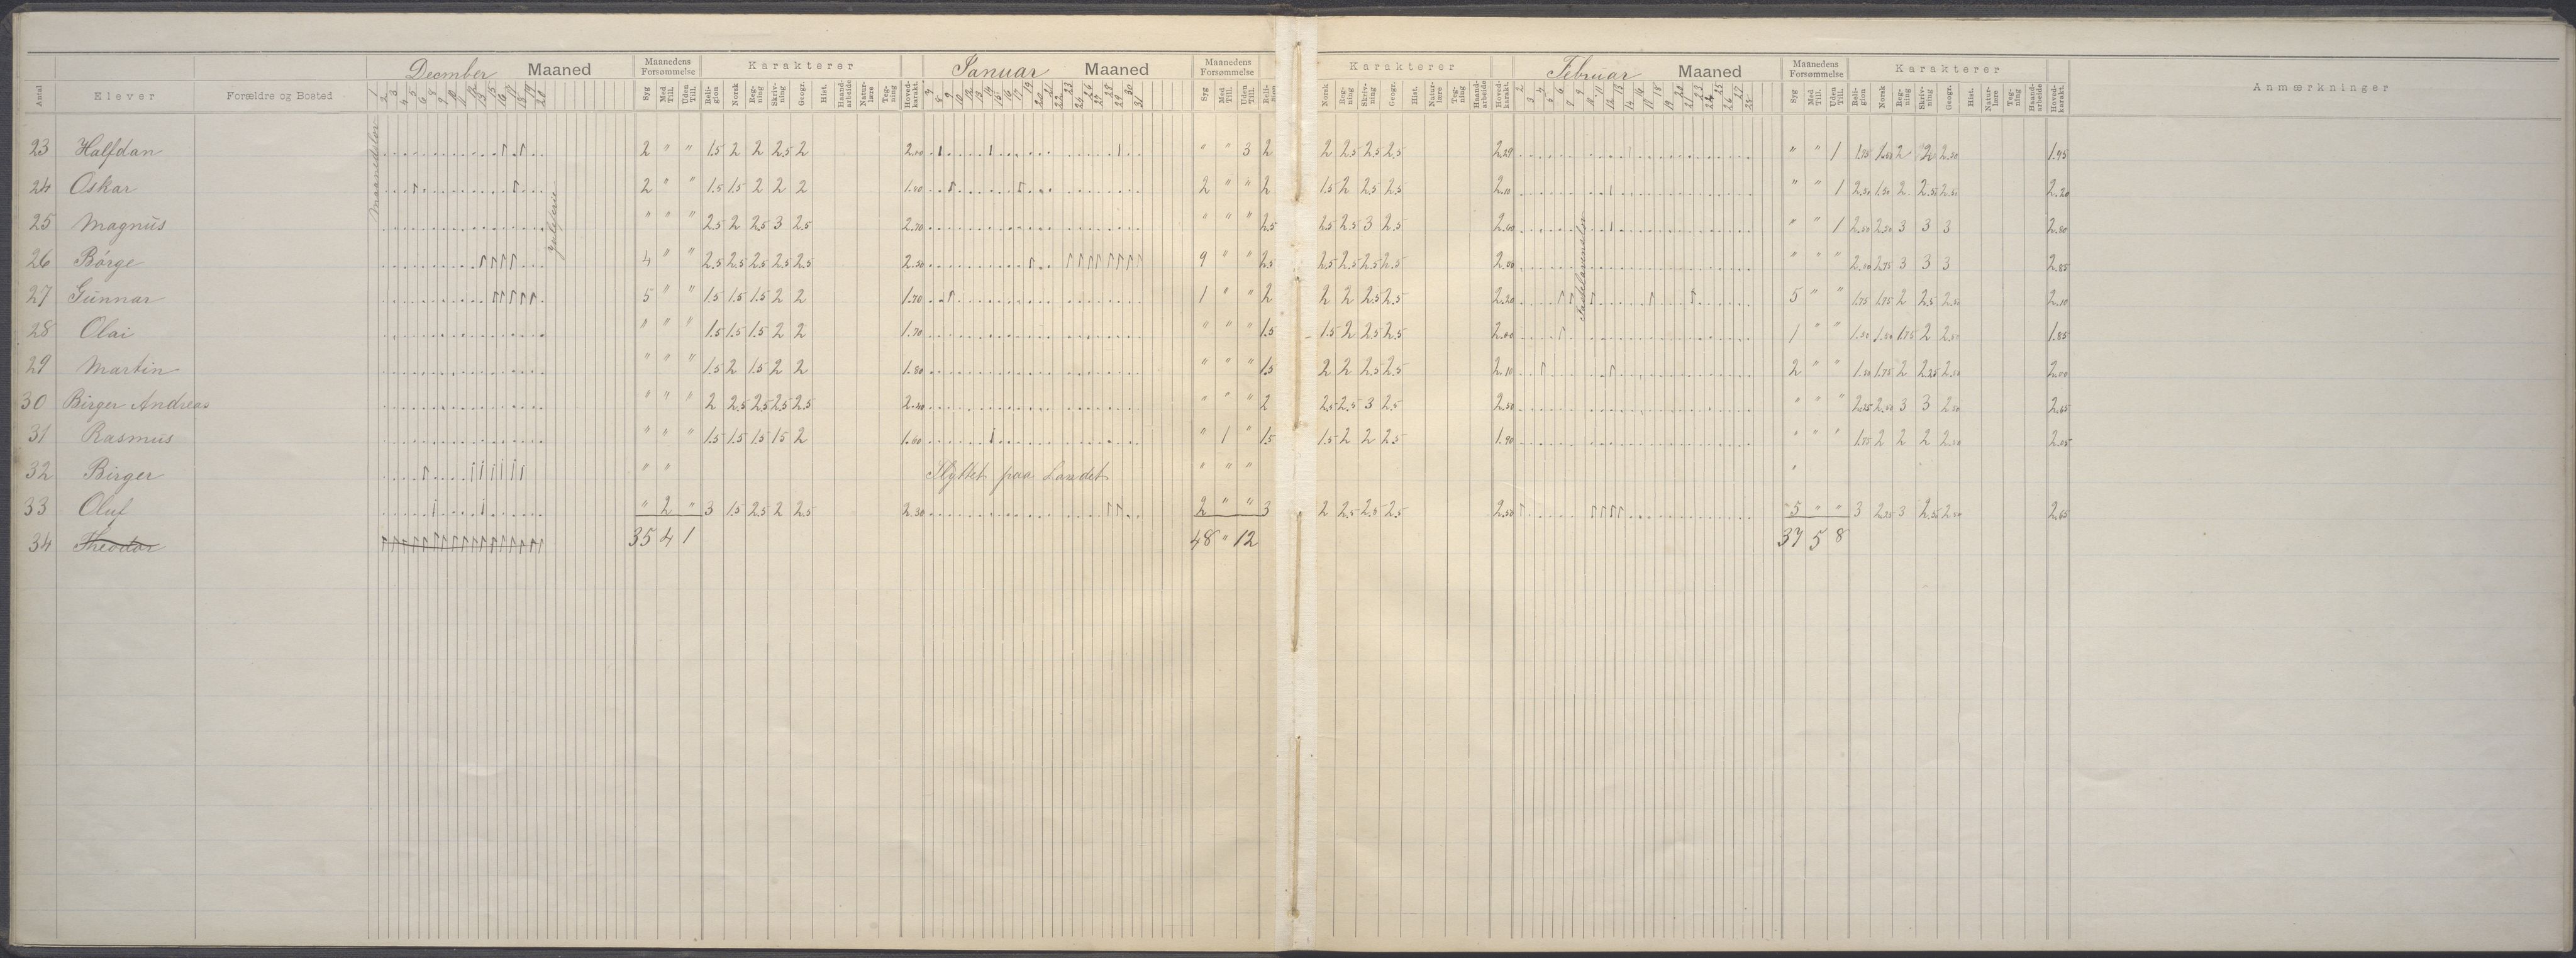 December Maaned Maanedens Forsømmelse Karakterer Januar Maaned Maanedens Forsømmelse Karakterer Februar Maaned Maanedens Forsømmelse Karakterer
Antal Elever Forældre og Bosted 1 2 3 4 5 6 8 9 10 11 12 13 15 16 17 18 19 20 Syg Med Till. Uden Till. Religion Norsk Regning Skrivning Geogr. Hist. Haandarbeide Naturlære Tegning Hovedkarakt. 7 8 9 10 12 13 14 15 16 17 19 20 21 22 23 24 26 27 28 29 30 31 Syg Med Till. Uden Till. Reli- Norsk Regning Skrivning Geogr. Hist. Naturlære Tegning Haandarbeide Hovedkarakt. 2 3 4 5 6 7 9 10 11 12 13 14 16 17 18 19 20 21 23 24 25 26 27 28 Syg Med Till. Uden Till. Religion Norsk Regning Skrivning Geogr. Hist. Naturlære Tegning Haandarbeide Hovedkarakt. Anmærkninger
maanedslov
Juleferie
Fastelavnsfri
23 Halfdan 2 " " 1.5 2 2 2.5 2 2.00 " " 3 2 2 2.5 2.5 2.5 2.29 " " 1 1.75 1.50 2 2 2.50 1.95
24 Oskar 2 " " 1.5 1.5 2 2 2 1.80 2 " " 2 1.5 2 2.5 2.5 2.10 " " 1 2.50 1.50 2 2.50 2.50 2.20
25 Magnus " " " 2.5 2 2.5 3 2.5 2.70 " " " 2.5 2.5 2.5 3 2.5 2.60 " " 1 2.50 2.50 3 3 3 2.80
26 Børge 4 " " 2.5 2.5 2.5 2.5 2.5 2.50 9 " " 2.5 2.5 2.5 2.5 2.5 2.00 " " " 2.50 2.75 3 3 3 2.85
27 Gunnar 5 " " 1.5 1.5 1.5 2 2 1.70 1 " " 2 2 2 2.5 2.5 2.20 5 " " 1.75 1.75 2 2.5 2.50 2.10
28 Olai " " " 1.5 1.5 1.5 2 2 1.70 " " " 1.5 1.5 2 2.5 2.5 2.00 1 " " 1.50 1.50 1.75 2 2.50 1.85
29 Martin " " " 1.5 2 1.5 2 2 1.80 " " " 1.5 2 2 2.5 2.5 2.10 2 " " 1.50 1.75 2 2.25 2.50 2.00
30 Birger Andreas " " " 2 2.5 2.5 2.5 2.5 2.40 " " " 2 2.5 2.5 3 2.5 2.50 " " " 2.25 2.50 3 3 2.50 2.65
31 Rasmus " " " 1.5 1.5 1.5 1.5 2 1.60 " 1 " 1.5 1.5 2 2 2.5 1.90 " " " 1.75 2 2 2 2.50 2.05
32 Birger " " Flyttet paa Landet " " " "
33 Oluf " 2 " 3 1.5 2.5 2 2.5 2.30 2 " " 3 2 2.5 2.5 2.5 2.50 5 " " 3 2.25 3 2.25 2.50 2.65
34 Theodor 35 4 1 48 " 12 37 5 8